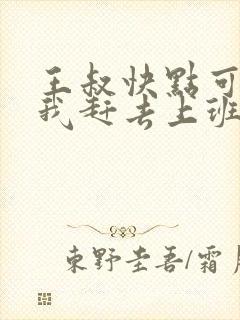 王叔快點可
我赶去上班
東野圭吾/霜月